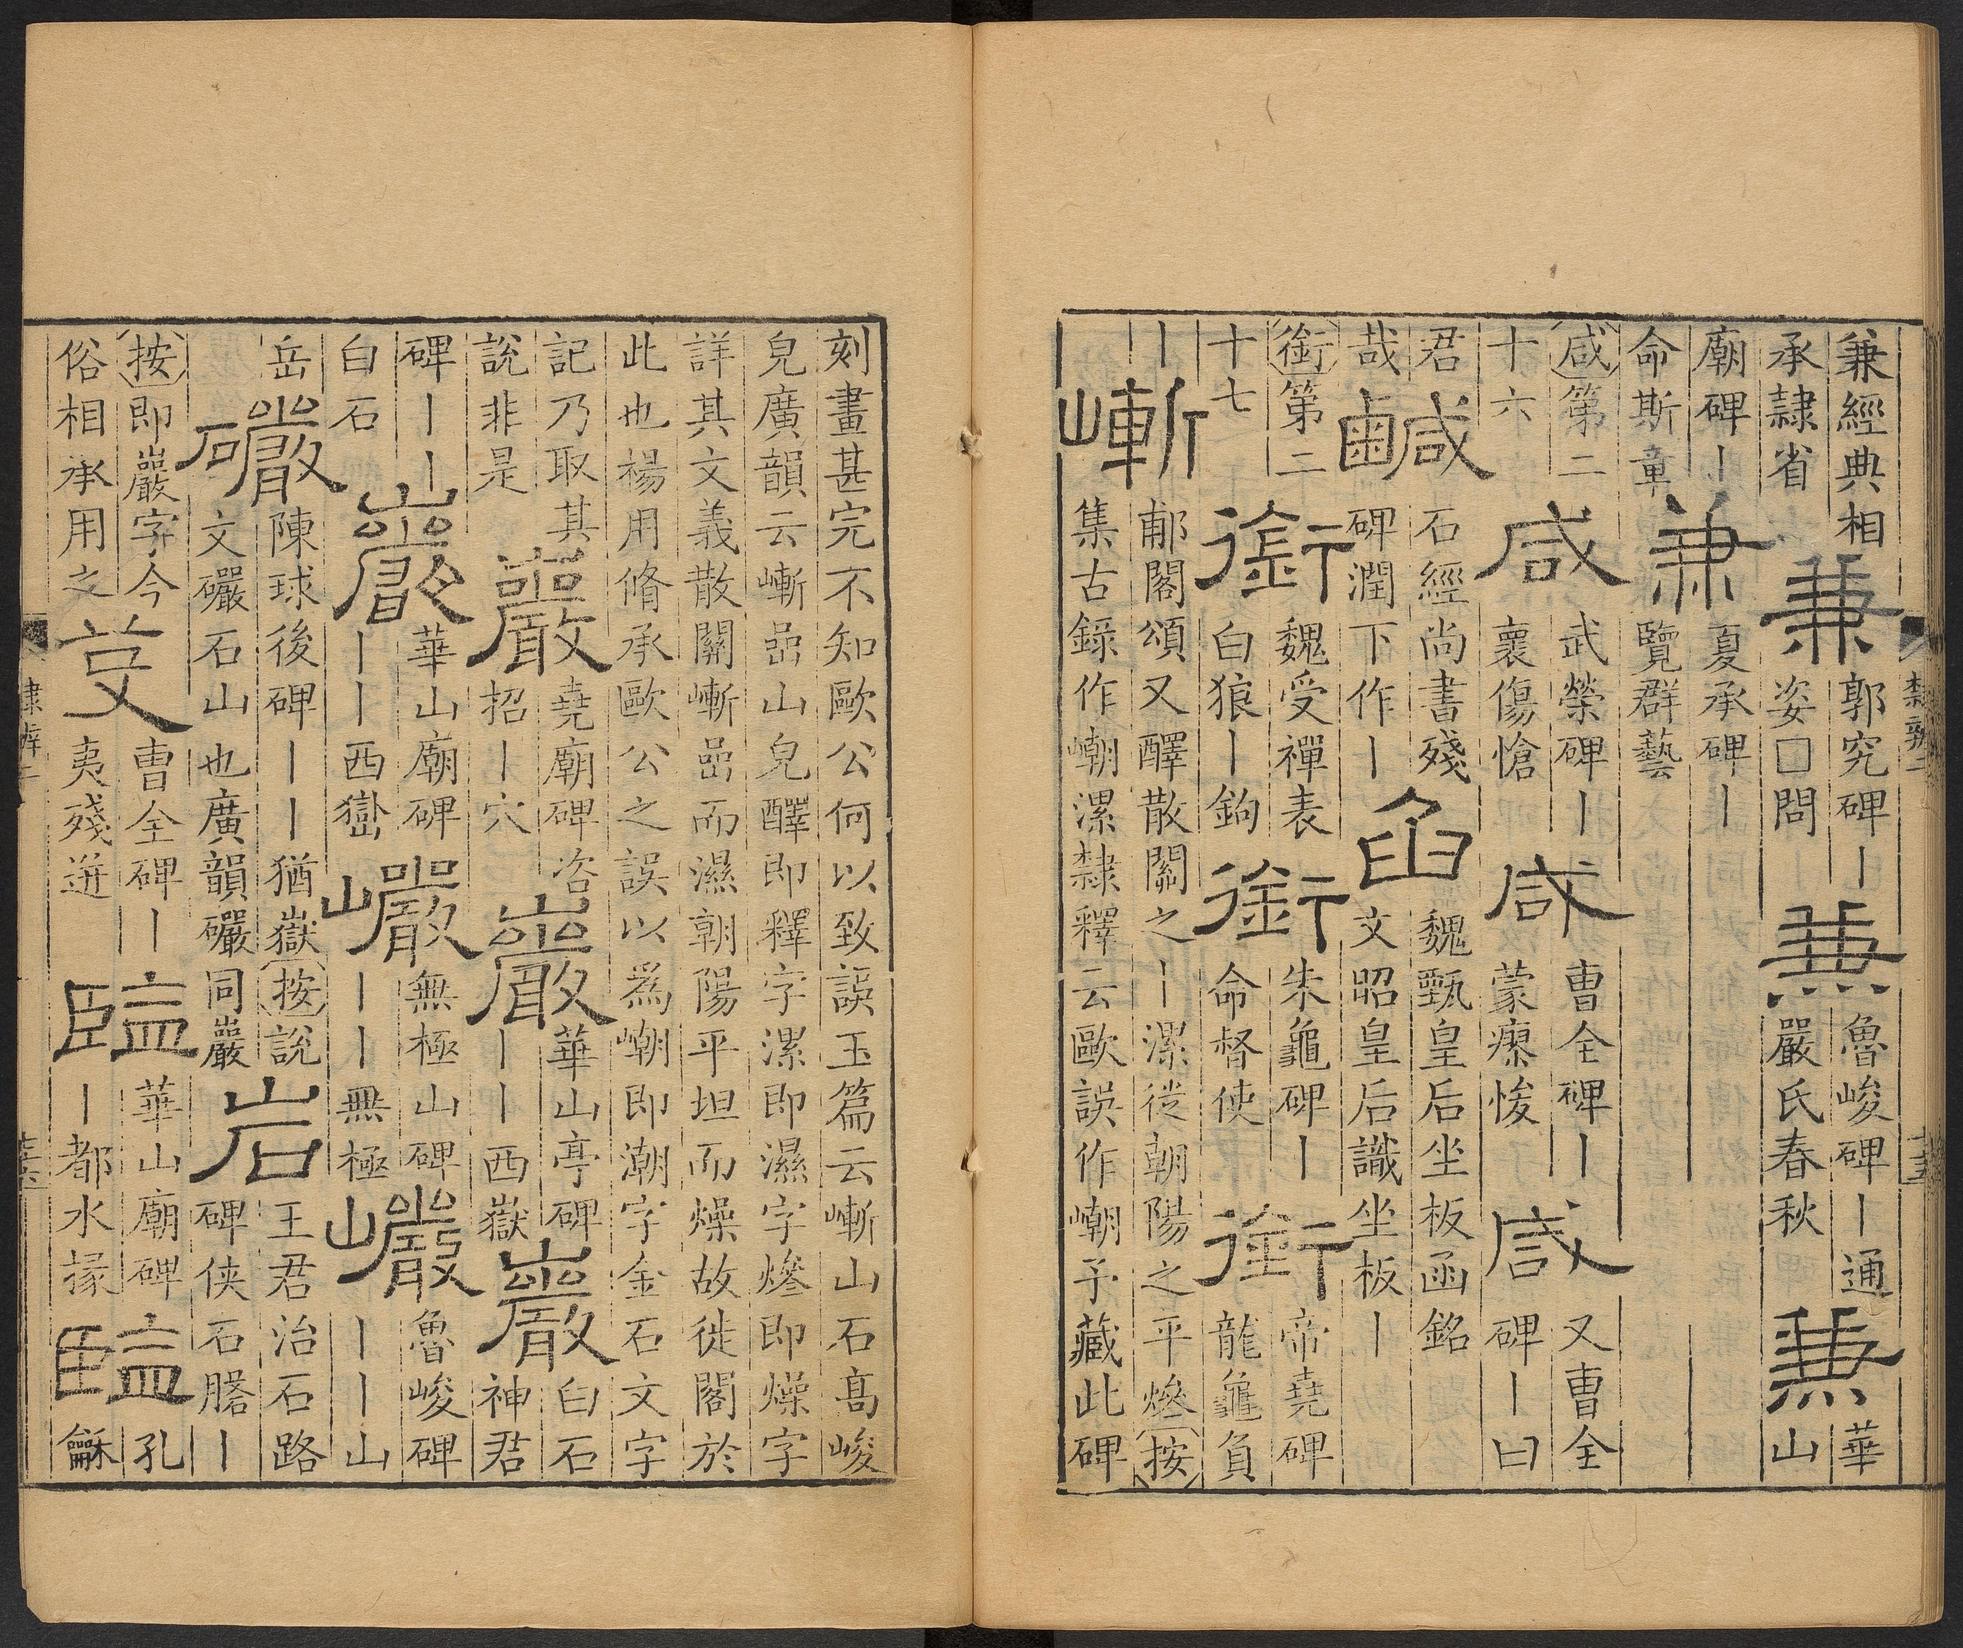 兼經典相
承隷省
兼
郭究碑丨
姿□問
兼
魯峻碑丨通
嚴氏春秋
兼
華
山
廟碑丨
命斯章
兼
夏承碑丨
覽群藝
咸第二
十六
咸
武榮碑丨
襄傷愴
咸
曹全碑丨
蒙瘝悛
咸
又曹全
碑丨曰
君
哉
鹹
石經尚書殘
碑潤下作丨
函
魏甄皇后坐板函銘
文昭皇后識坐板丨
銜第二
十七
銜
魏受禪表
白狼丨鉤
銜
朱龜碑丨
命督使
銜
帝堯碑
龍龜負
丨
嶄
郙閣頌又醳散關之丨漯徙朝陽之平燓按
集古錄作𡼼漯隸釋云歐誤作𡼼予藏此碑
刻畫甚完不知歐公何以致誤玉篇云嶄山石髙峻
皃廣韻云嶄嵒山皃醳即釋字漯即濕字燓即燥字
詳其文義散關嶄嵒而濕朝陽平坦而燥故徙閣於
此也楊用脩承歐公之誤以爲𡼼即潮字金石文字
記乃取其
說非是
巖
堯廟碑咨
招丨穴
巖
華山亭碑
丨丨西嶽
巖
白石
神君
碑丨丨
白石
巖
華山廟碑
丨丨西嶽
巖
無極山碑
丨丨無極
巖
魯峻碑
丨丨山
岳
礹
陳球後碑丨丨猶嶽按說
文礹石山也廣韻礹同巖
岩
王君治石路
碑俠石䐁丨
按即巖字今
俗相承用之
芟
曹全碑丨
夷殘迸
監
華山廟碑
丨都水掾
監
孔
龢